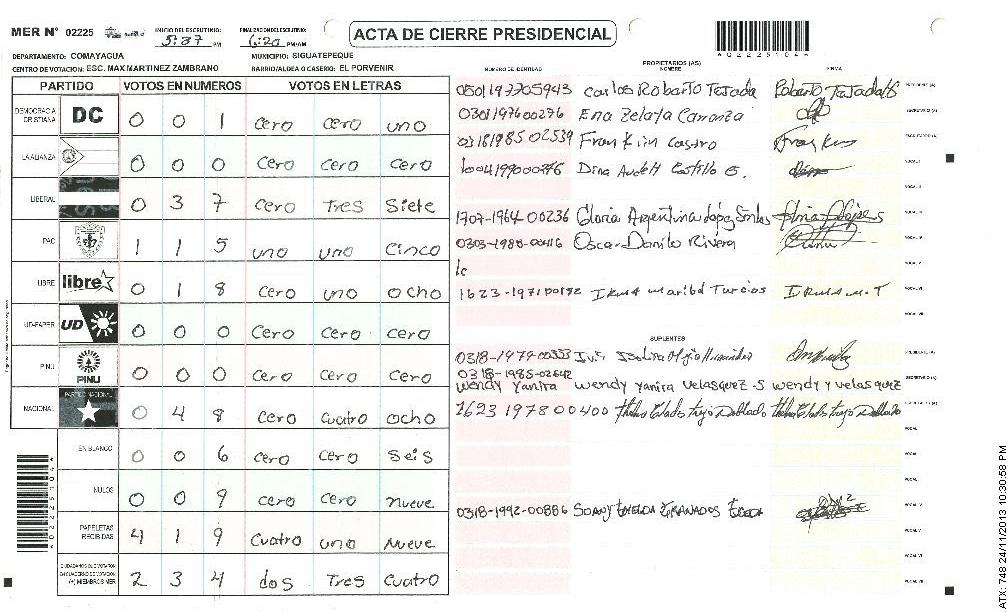 MER Nº 02225 INICIO DEL ESCRUTINIO: 5:37 PM FINALIZACION DEL ESCRUTINIO: 6:20 PM/AM ACTA DE CIERRE PRESIDENCIAL
DEPARTAMENTO: COMAYAGUA MUNICIPIO: SIGUATEPEQUE
CENTRO DE VOTACION: ESC. MAX MARTINEZ ZAMBRANO BARRIO/ALDEA O CASERIO: EL PORVENIR
PARTIDO VOTOS EN NUMEROS VOTOS EN LETRAS
DEMOCRACIA CRISTIANA DC 0 0 1 cero cero uno
LA ALIANZA 0 0 0 cero cero cero
LIBERAL 0 3 7 cero Tres Siete
PAC 1 1 5 uno uno Cinco
LIBRE libre 0 1 8 cero uno ocho
UD-FAPER UD 0 0 0 cero cero cero
PINU PINU 0 0 0 cero cero cero
NACIONAL PARTIDO NACIONAL 0 4 8 cero cuatro ocho
EN BLANCO 0 0 6 cero cero Seis
NULOS 0 0 9 cero cero nueve
PAPELETAS RECIBIDAS 4 1 9 Cuatro uno Nueve
CIUDADANOS QUE VOTARON EN CUADERNO DE VOTACION (+) MIEMBROS MER 2 3 4 dos Tres Cuatro
A022251044
PROPIETARIOS (AS)
NUMERO DE IDENTIDAD NOMBRE FIRMA
0501197705943 Carlos Roberto Tejada PRESIDENTE (A)
0301197600276 Ena Zelaya Carranza SECRETARIO (A)
0318198502539 Franklin Castro ESCRUTADOR (A)
Castillo G. VOCAL I
VOCAL II
1707-1964-00236 Gloria Argentina López VOCAL III
0303-1988-00416 Oscar Danilo Rivera VOCAL IV
VOCAL V
Irma Maribel Turcios Irma M. T VOCAL VI
VOCAL VII
SUPLENTES
0318-1979-00333 PRESIDENTE (A)
0318-1985-02642 SECRETARIO (A)
Wendy Yanira Wendy Yanira Velasquez S Wendy Y Velasquez
1623197800400 ESCRUTADOR (A)
VOCAL I
VOCAL II
VOCAL III
0318-1992-00886 GRANADOS VOCAL IV
VOCAL V
VOCAL VI
VOCAL VII
A022251044
ATX: 748 24/11/2013 10:30:58 PM